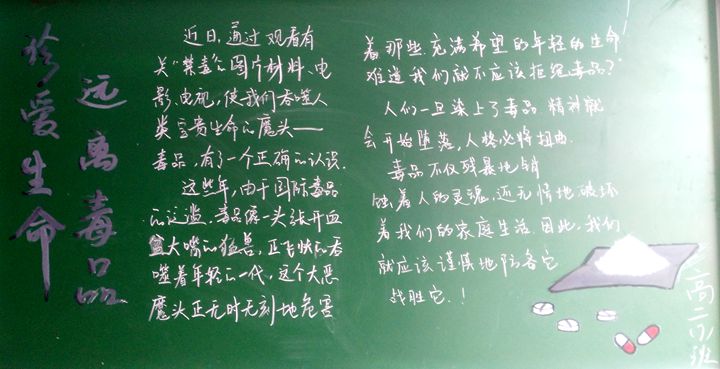 珍爱生命
远离毒品
近日,通过观看有
关“禁毒”的图片材料、电
影、电视,使我们吞噬人
类宝贵生命的魔头——
毒品,有了一个正确的认识.
这些年,由于国际毒品
的泛滥,毒品像一头张开血
盆大嘴的猛兽,正飞快的吞
噬着年轻的一代,这个大恶
魔头正无时无刻地危害
着那些充满希望的年轻的生命
难道我们就不应该拒绝毒品?
人们一旦染上了毒品 精神就
会开始堕落,人格必将扭曲.
毒品不仅残暴地销
蚀着人的灵魂,还无情地破坏
着我们的家庭生活.因此,我们
就应该谨慎地防备它
战胜它.!
高二(1)班